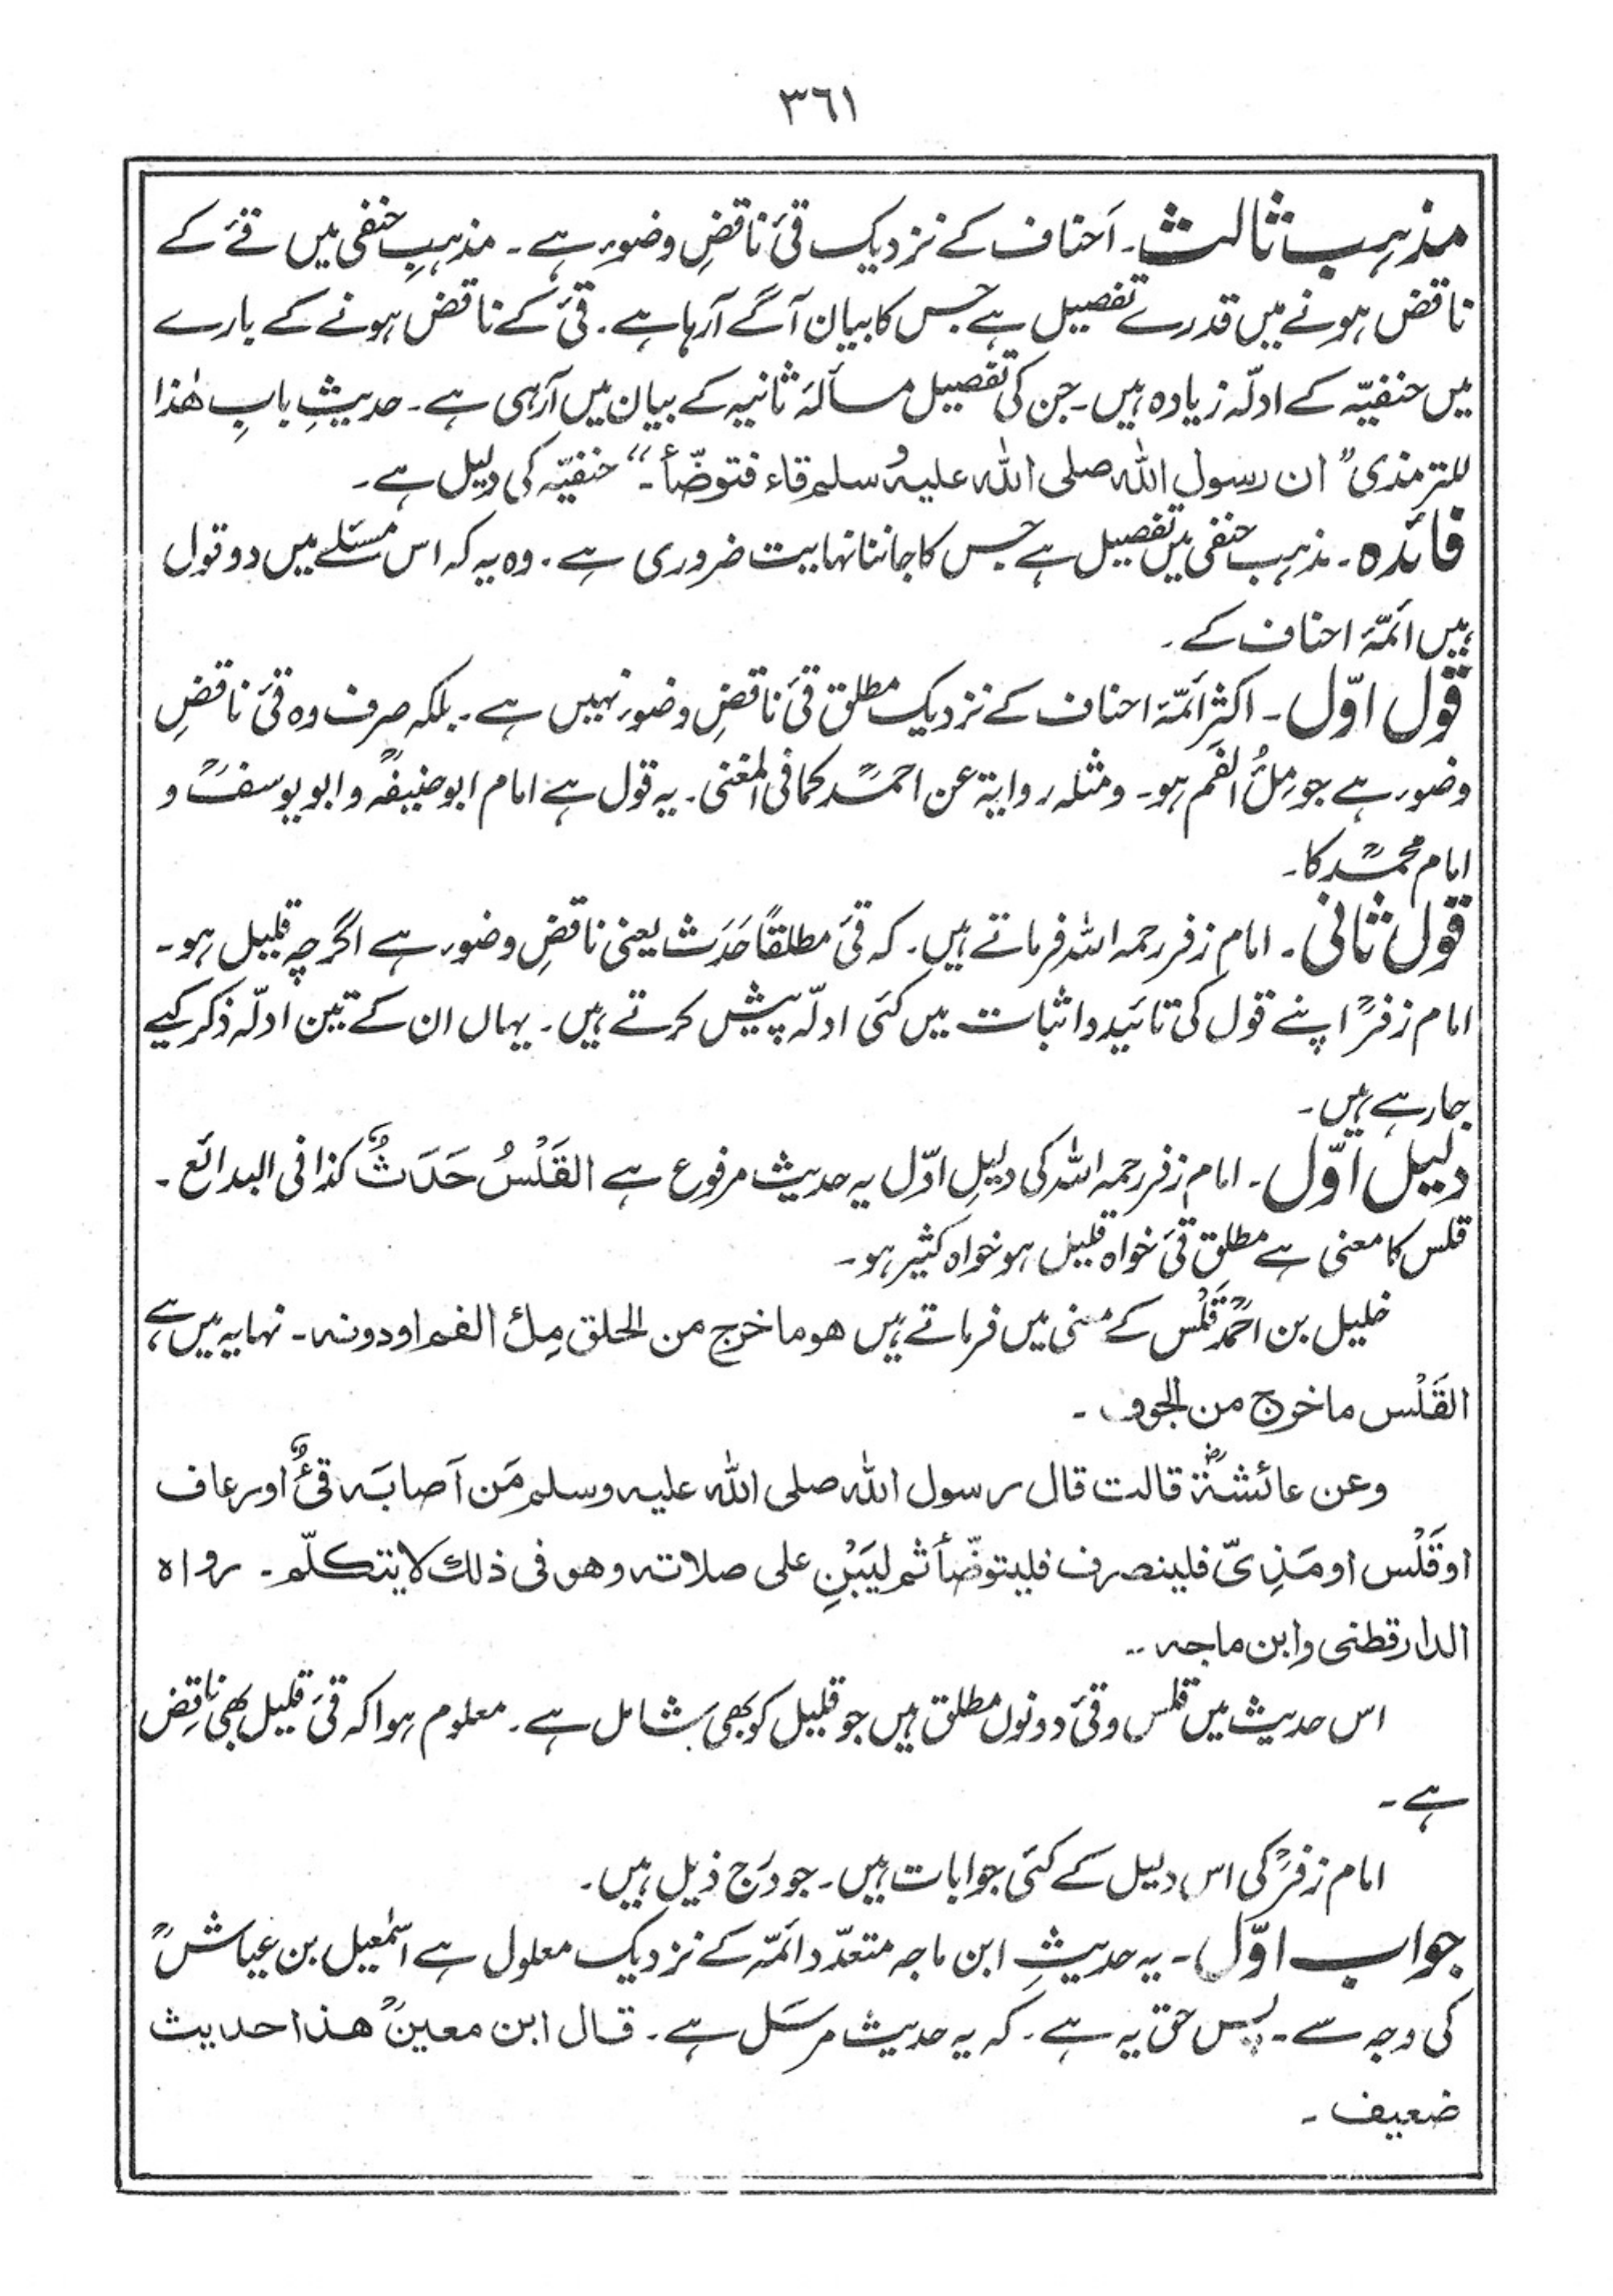 ٣٦١
مذہب ثالث۔ اَحناف کے نزدیک قیٔ ناقضِ وضوء ہے۔ مذہبِ حنفی میں قئے کے
ناقض ہونے میں قدرے تفصیل ہے جس کا بیان آگے آرہا ہے۔ قیٔ کے ناقض ہونے کے بارے
میں حنفیّہ کے ادلّہ زیادہ ہیں۔ جن کی تفصیل مسألۂ ثانیہ کے بیان میں آرہی ہے۔ حدیثِ بابِ ھٰذا
للترمذی ”ان رسول اللہ صلی اللہ علیہ وسلم قاء فتوضّأ۔“ حنفیّہ کی دلیل ہے۔
فائدہ۔ مذہب حنفی میں تفصیل ہے جس کا جاننا نہایت ضروری ہے۔ وہ یہ کہ اس مسئلے میں دو قول
ہیں ائمّۂ احناف کے۔
قول اوّل۔ اکثر ائمّۂ احناف کے نزدیک مطلق قیٔ ناقضِ وضوء نہیں ہے۔ بلکہ صرف وہ قیٔ ناقضِ
وضوء ہے جو مِلءُ الفَم ہو۔ ومثلہ روایۃ عن احمدؒ کما فی المغنی۔ یہ قول ہے امام ابوحنیفہؒ و ابویوسفؒ و
امام محمدؒ کا۔
قول ثانی۔ امام زفر رحمہ اللہ فرماتے ہیں۔ کہ قیٔ مطلقاً حَدَث یعنی ناقضِ وضوء ہے اگرچہ قلیل ہو۔
امام زفرؒ اپنے قول کی تائید و اثبات میں کئی ادلّہ پیش کرتے ہیں۔ یہاں ان کے تین ادلّہ ذکر کیے
جارہے ہیں۔
دلیل اوّل۔ امام زفر رحمہ اللہ کی دلیلِ اوّل یہ حدیث مرفوع ہے القَلْسُ حَدَثٌ کذا فی البدائع۔
قلس کا معنی ہے مطلق قیٔ خواہ قلیل ہو خواہ کثیر ہو۔
خلیل بن احمدؒ قَلْس کے معنی میں فرماتے ہیں ھو ما خرج من الحلق مِلءُ الفم او دونہ۔ نہایہ میں ہے
القَلْس ما خرج من الجوف۔
وعن عائشۃؓ قالت قال رسول اللہ صلی اللہ علیہ وسلم مَن اَصابَہ قیٌٔ او رعاف
او قَلْس او مَذِیّ فلینصرف فلیتوضّأ ثم لیَبْنِ علی صلاتہ وھو فی ذلک لا یتکلّم۔ رواہ
الدارقطنی وابن ماجہ۔
اس حدیث میں قلس و قیٔ دونوں مطلق ہیں جو قلیل کو بھی شامل ہے۔ معلوم ہوا کہ قیٔ قلیل بھی ناقِض
ہے۔
امام زفرؒ کی اس دلیل کے کئی جوابات ہیں۔ جو درج ذیل ہیں۔
جواب اوّل۔ یہ حدیثِ ابن ماجہ متعدّد ائمّہ کے نزدیک معلول ہے اسمٰعیل بن عیاشؒ
کی وجہ سے۔ پس حق یہ ہے۔ کہ یہ حدیث مرسَل ہے۔ قال ابن معینؒ ھذا حدیث
ضعیف۔